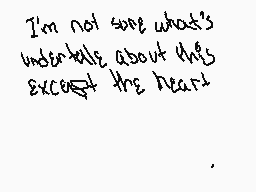 I'm not sure what's
undertale about this
except the heart
.